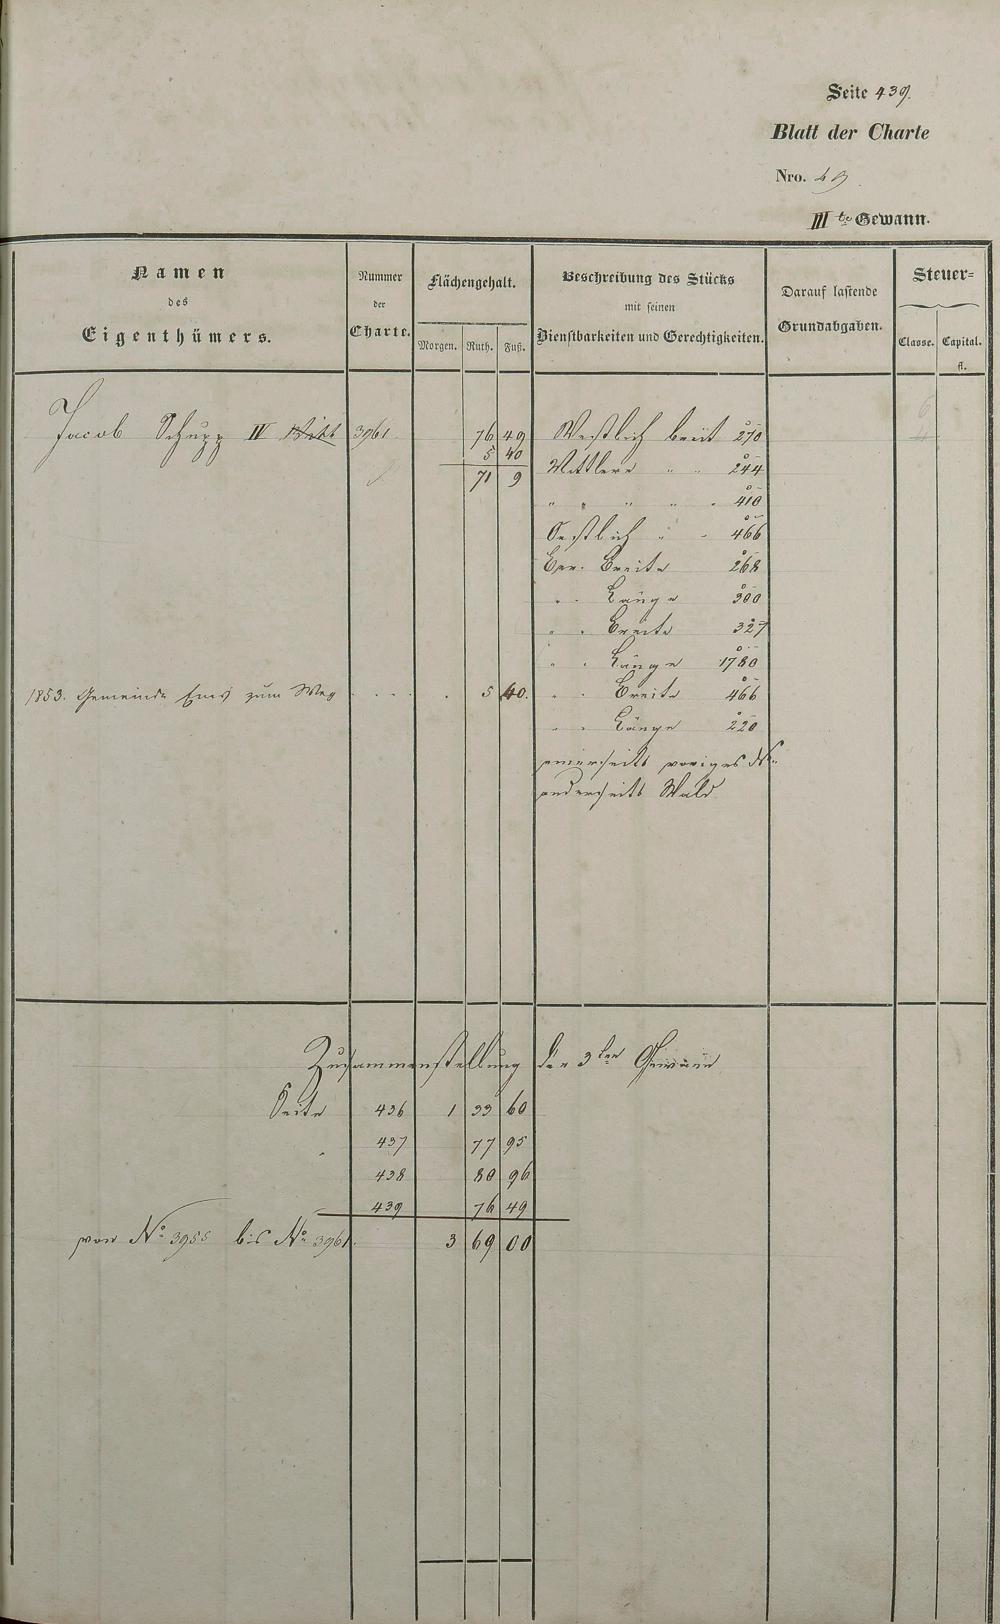 Seite 439.
Blatt der Charte
Nro. 49
III te Gewann.
Namen des Eigenthümers.
Nummer der Charte.
Flächengehalt.
Morgen. Ruth. Fuß.
Beschreibung des Stücks mit seinen Dienstbarkeiten und Gerechtigkeiten.
Darauf lastende Grundabgaben.
Steuer=
Classe. Capital. fl.
Jacob Schupp IV 3961 76 49 Westlich breit 270
5 40 Mittlere " " 244
71 9
" " " " " 410
Oestlich " " 466
Err. Breite 268
" " Länge 300
" " Breite 327
" " Länge 1780
1853. Gemeinde Ems zum Weg . . . . 5 40. " " Breite 466
" " Länge 220
einerseits voriges No.
anderseits Wald
Zusammenstellung der 3ten Gewann
Seite 436 1 33 60
" 437 77 95
438 80 96
439 76 49
von No 3955 bis No 3961. 3 69 00